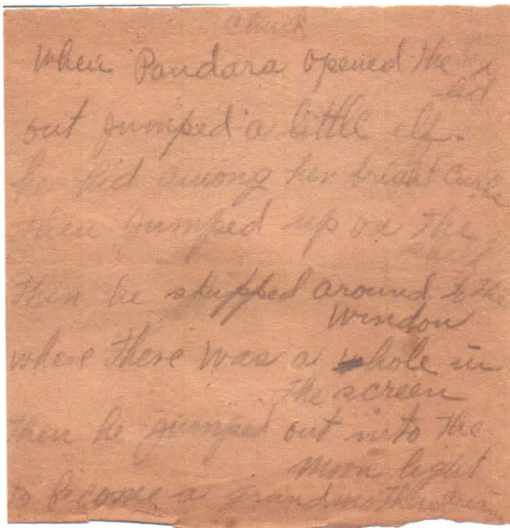 Chuck
When Pandara opened the
lid
out jumped a little elf.
he hid among her bright curls
then jumped up on the
shelf
Then he skipped around to the
Window
where there was a whole in
the screen
then he jumped out into the
moon light
to become a grandmothers dream